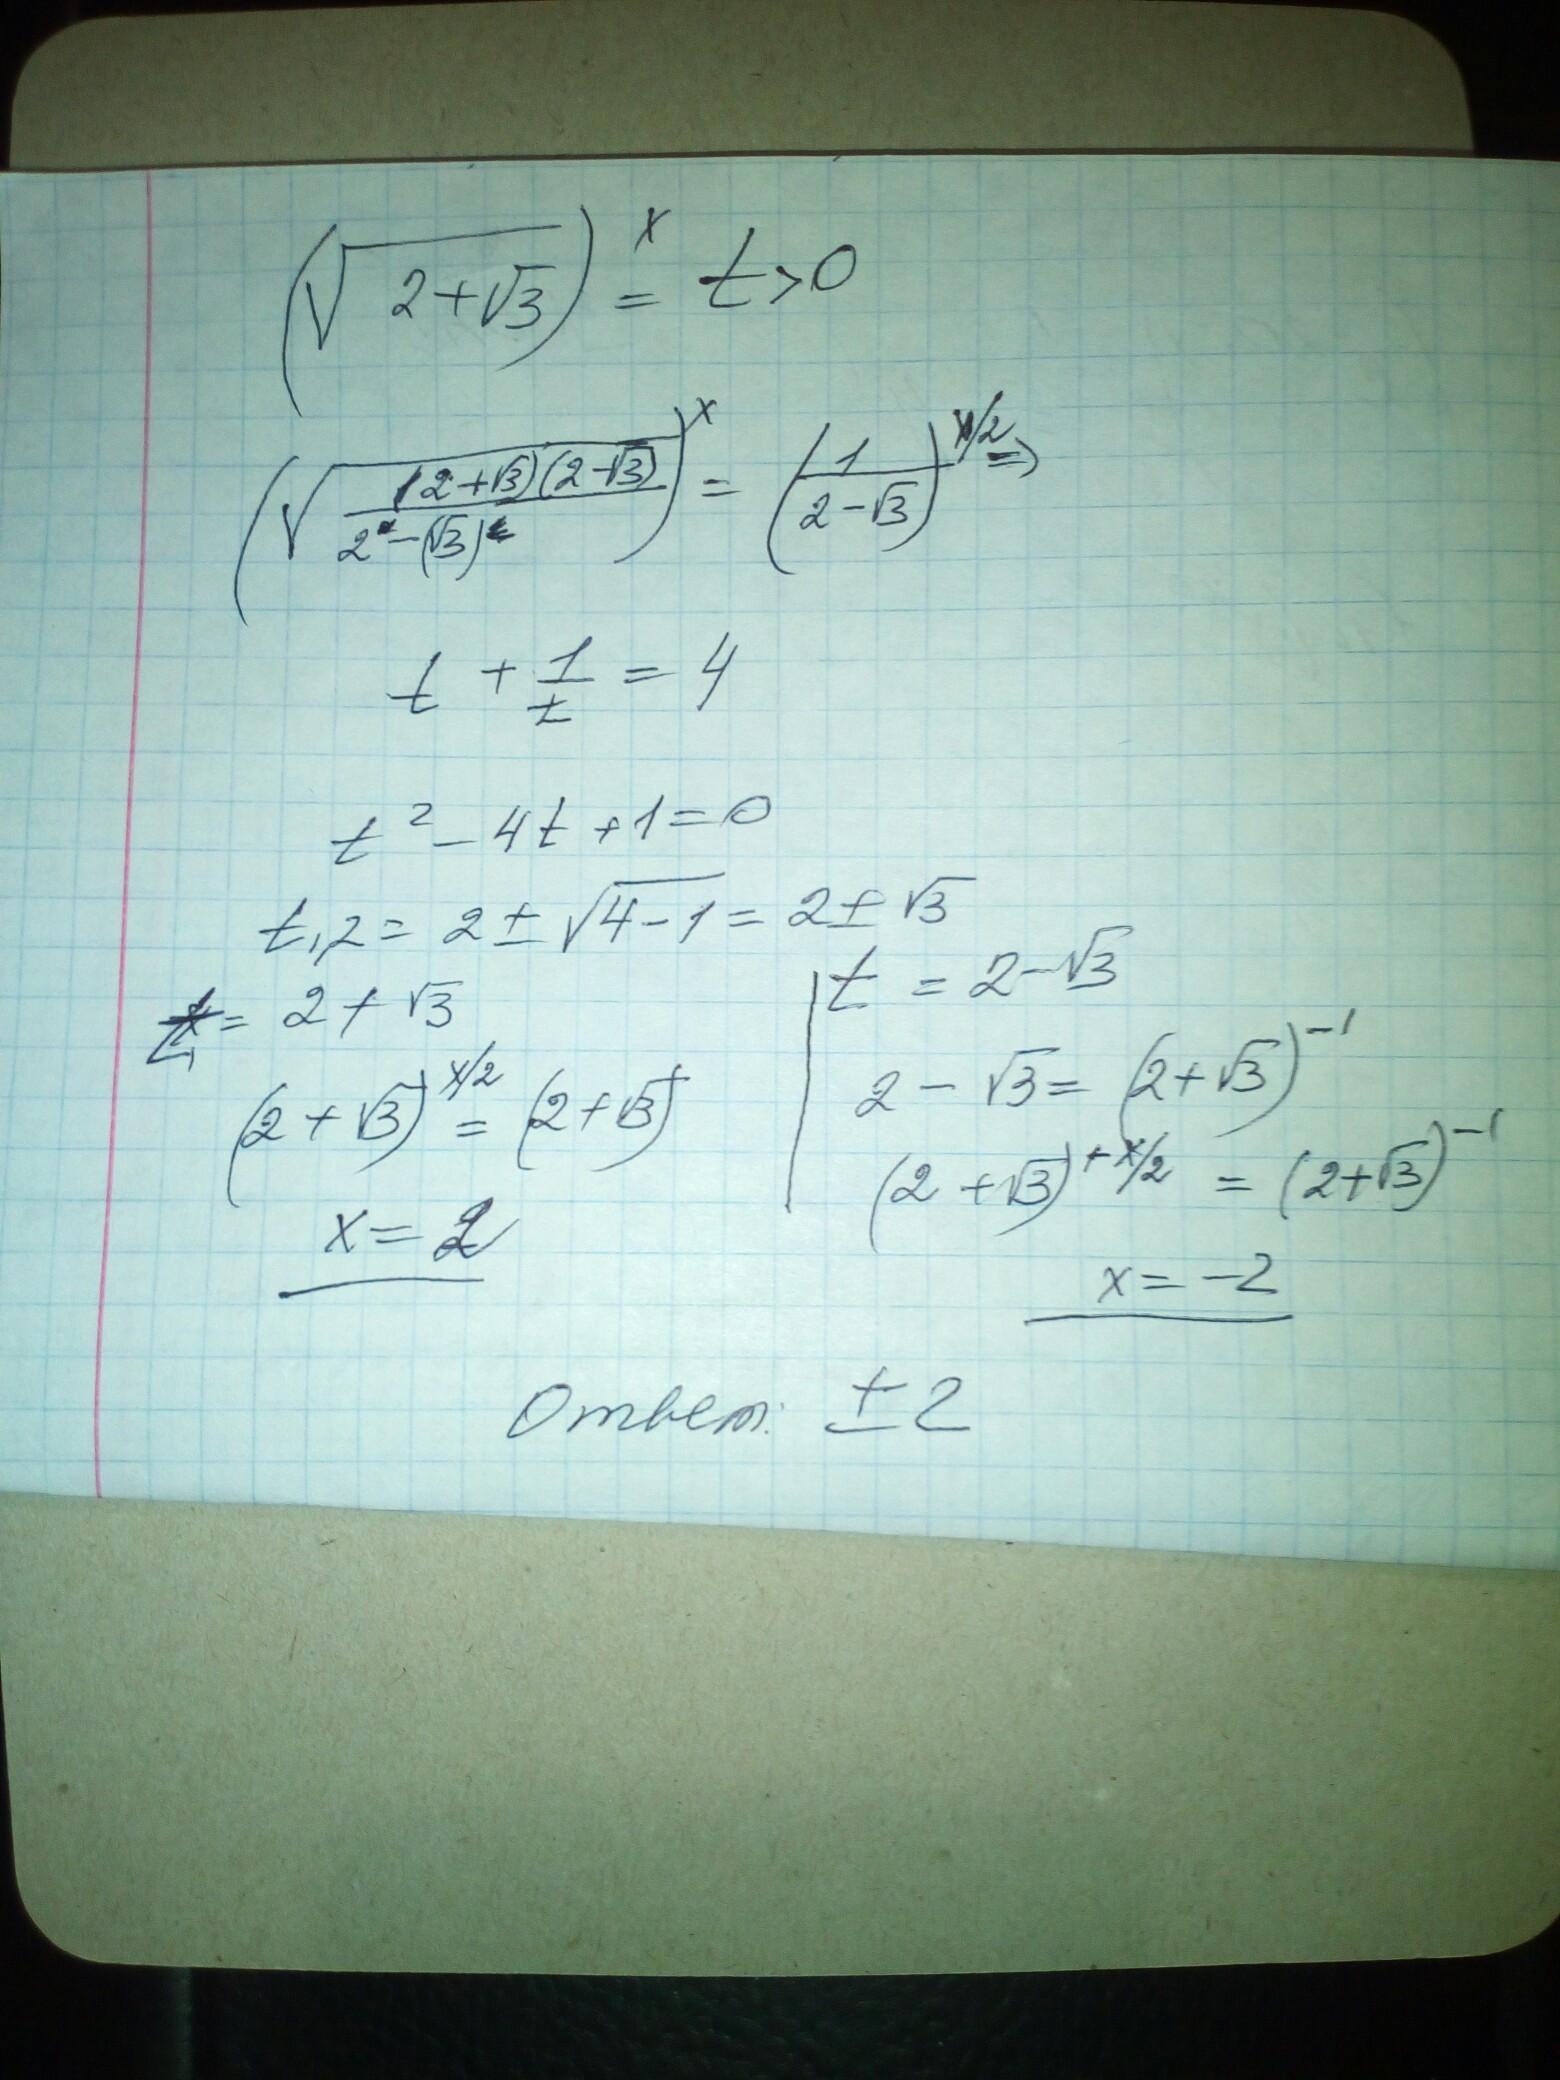 (√(2+√3))^x = t>0
(√((2+√3)(2-√3)/(2-(√3))))^x = (1/(2-√3))^(x/2) =>
t + 1/t = 4
t² - 4t + 1 = 0
t₁,₂ = 2 ± √(4-1) = 2 ± √3
t₁ = 2 + √3
(2 + √3)^(x/2) = (2+√3)
x = 2
t = 2 - √3
2 - √3 = (2+√3)^(-1)
(2 + √3)^(+x/2) = (2+√3)^(-1)
x = -2
Ответ: ±2